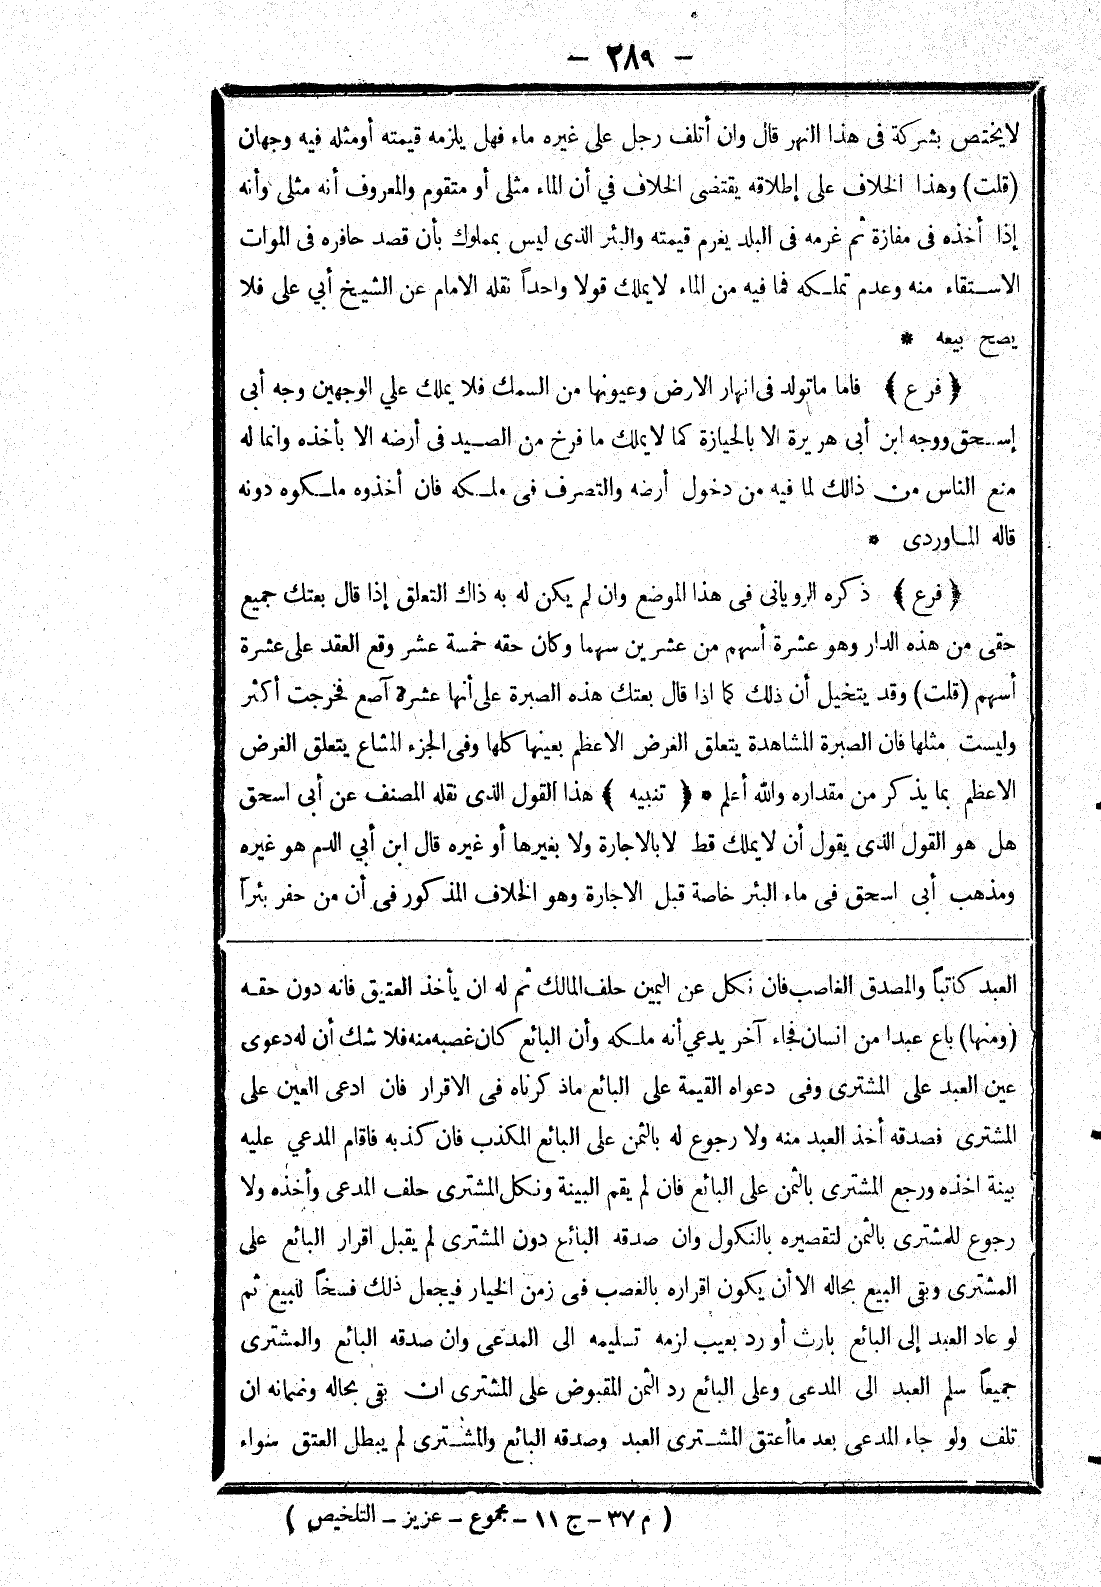 — ٢٨٩ —
لا يختص بشركة فى هذا النهر قال وان أتلف رجل على غيره ماء فهل يلزمه قيمته أو مثله فيه وجهان
(قلت) وهذا الخلاف على إطلاقه يقتضى الخلاف في أن الماء مثلى أو متقوم والمعروف أنه مثلى وأنه
إذا أخذه فى مفازة ثم غرمه فى البلد يغرم قيمته والبئر الذى ليس بمملوك بأن قصد حافره فى الموات
الاستقاء منه وعدم تملكه فما فيه من الماء لا يملك قولا واحداً نقله الامام عن الشيخ أبي على فلا
يصح بيعه *
﴿ فرع ﴾ فاما ماتولد فى انهار الارض وعيونها من السمك فلا يملك علي الوجهين وجه أبى
إسحق ووجه ابن أبى هريرة الا بالحيازة كما لا يملك ما فرخ من الصيد فى أرضه الا بأخذه وانما له
منع الناس من ذالك لما فيه من دخول أرضه والتصرف فى ملكه فان أخذوه ملكوه دونه
قاله الماوردى *
﴿ فرع ﴾ ذكره الرويانى فى هذا الموضع وان لم يكن له به ذاك التعلق إذا قال بعتك جميع
حقى من هذه الدار وهو عشرة أسهم من عشرين سهما وكان حقه خمسة عشر وقع العقد على عشرة
أسهم (قلت) وقد يتخيل أن ذلك كما اذا قال بعتك هذه الصبرة على أنها عشرة آصع فخرجت أكثر
وليست مثلها فان الصبرة المشاهدة يتعلق الغرض الاعظم بعينها كلها وفى الجزء المشاع يتعلق الغرض
الاعظم بما يذكر من مقداره والله أعلم * ﴿ تنبيه ﴾ هذا القول الذى نقله المصنف عن أبى اسحق
هل هو القول الذى يقول أن لا يملك قط لا بالاجارة ولا بغيرها أو غيره قال ابن أبي الدم هو غيره
ومذهب أبى اسحق فى ماء البئر خاصة قبل الاجارة وهو الخلاف المذكور فى أن من حفر بئرآ
العبد كاتباً والمصدق الغاصب فان نكل عن اليمين حلف المالك ثم له ان يأخذ العتيق فانه دون حقه
(ومنها) باع عبدا من انسان فجاء آخر يدعي أنه ملكه وأن البائع كان غصبه منه فلا شك أن له دعوى
عين العبد على المشترى وفى دعواه القيمة على البائع ماذكرناه فى الاقرار فان ادعى العين على
المشترى فصدقه أخذ العبد منه ولا رجوع له بالثمن على البائع المكذب فان كذبه فاقام المدعي عليه
بينة اخذه ورجع المشترى بالثمن على البائع فان لم يقم البينة ونكل المشترى حلف المدعى وأخذه ولا
رجوع للمشترى بالثمن لتقصيره بالنكول وان صدقه البائع دون المشترى لم يقبل اقرار البائع على
المشترى وبقى البيع بحاله الا أن يكون اقراره بالغصب فى زمن الخيار فيجعل ذلك فسخاً للبيع ثم
لو عاد العبد إلى البائع بارث أو رد بعيب لزمه تسليمه الى المدعى وان صدقه البائع والمشترى
جميعاً سلم العبد الى المدعى وعلى البائع رد الثمن المقبوض على المشترى ان بقى بحاله وضمانه ان
تلف ولو جاء المدعى بعد ما أعتق المشترى العبد وصدقه البائع والمشترى لم يبطل العتق سواء
( م ٣٧ – ج ١١ – مجموع – عزيز – التلخيص )